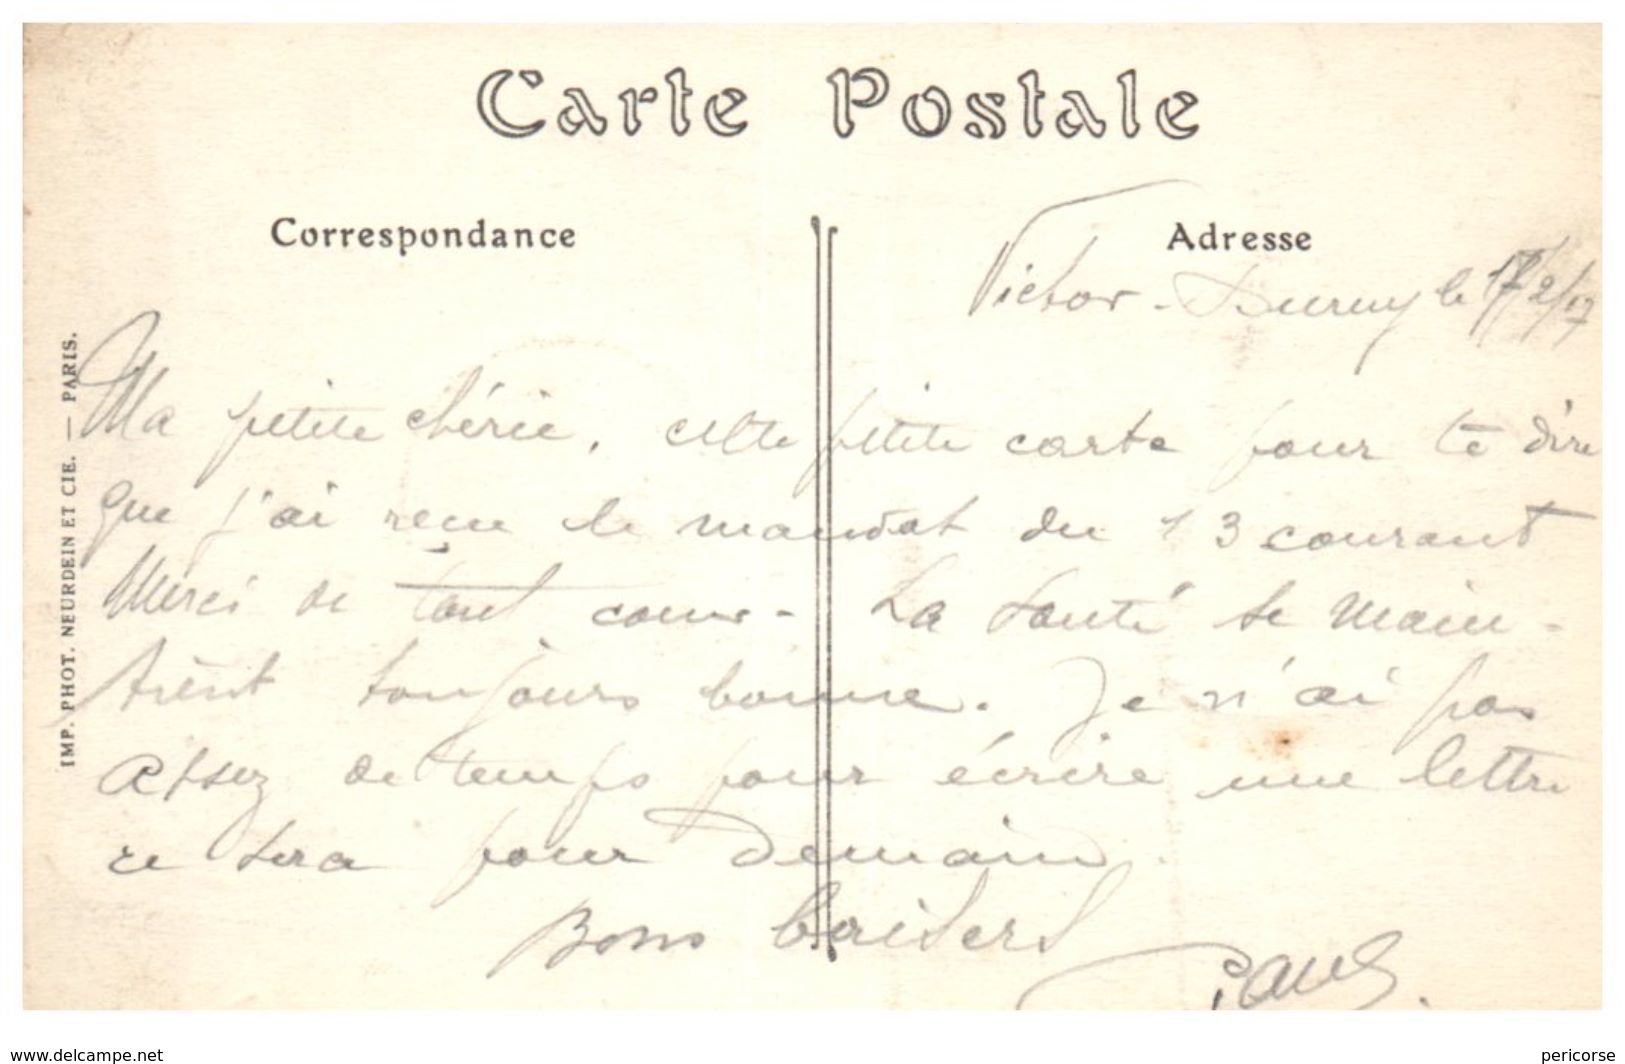 Carte Postale
Correspondance
Adresse
Victor-Duruy le 17/2/17
Ma petite chérie, cette petite carte pour te dire
que j'ai recu le mandat du 13 courant
Merci de tout coeur - La santé se main-
tient toujours bonne. Je n'ai pas
assez de temps pour écrire une lettre
ce sera pour demain.
Bons baisers
Paul
IMP. PHOT. NEURDEIN ET CIE. — PARIS.
www.delcampe.net
pericorse